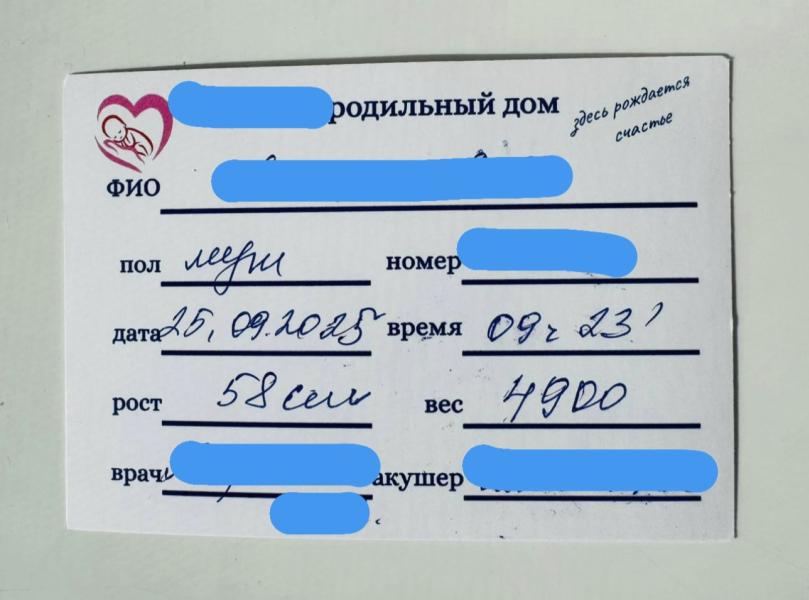 родильный дом
здесь рождается
счастье
ФИО
пол муж номер
дата 25.09.2025 время 09ч 23'
рост 58 см вес 4900
врач акушер